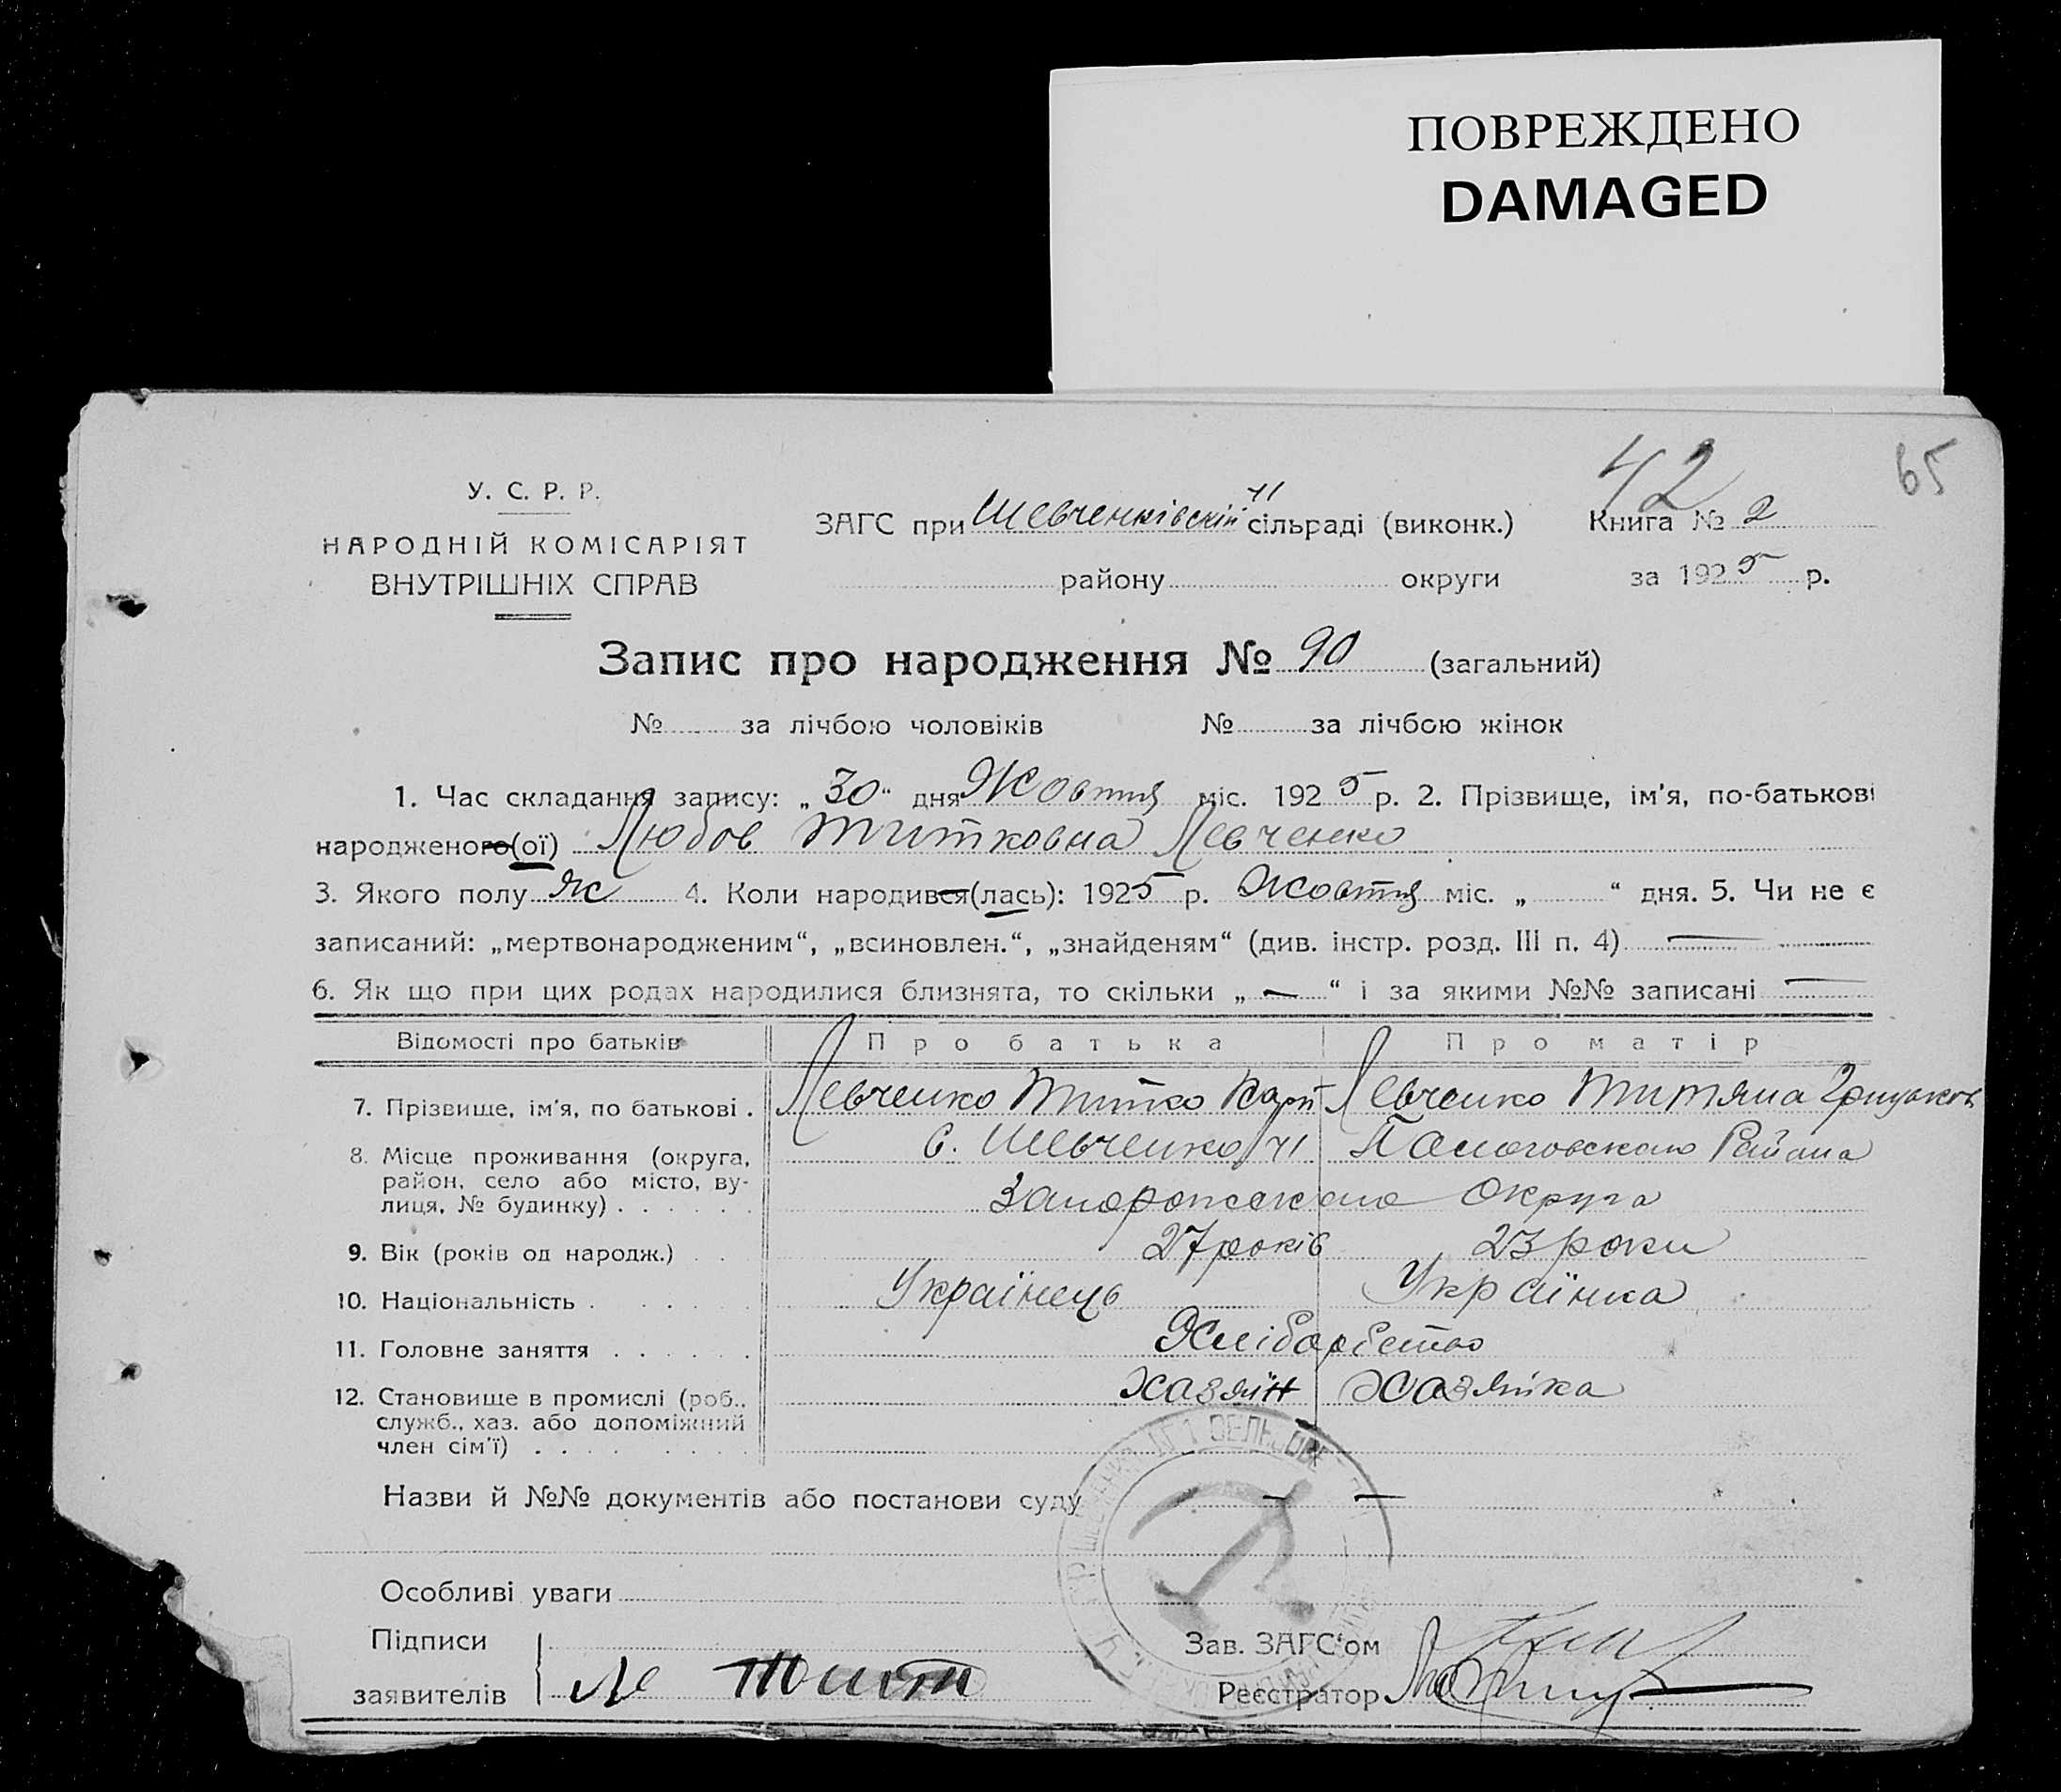 ПОВРЕЖДЕНО
DAMAGED
42
65
У. С. Р. Р.
НАРОДНІЙ КОМІСАРІЯТ
ВНУТРІШНІХ СПРАВ
ЗАГС при Шевченківскій сільраді (виконк.)
району округи
Книга № 2
за 1925 р.
Запис про народження № 90 (загальний)
№ за лічбою чоловіків № за лічбою жінок
1. Час складання запису: „30“ дня Жовтня міс. 1925 р. 2. Прізвище, ім'я, по-батькові
народженого(ої) Любов Титковна Левченко
3. Якого полу ж 4. Коли народився(лась): 1925 р. Жовтня міс. „ “ дня. 5. Чи не є
записаний: „мертвонародженим“, „всиновлен.“, „знайденям“ (див. інстр. розд. III п. 4) —
6. Як що при цих родах народилися близнята, то скільки „—“ і за якими №№ записані —
Відомості про батьків Про батька Про матір
7. Прізвище, ім'я, по батькові . Левченко Титко Карп Левченко Титяна
8. Місце проживання (округа, С. Шевченко Пологовского Района
район, село або місто, ву-
лиця, № будинку) . . . . . . Запорожского Округа
9. Вік (років од народж.) . . 27 років 23 роки
10. Національність . . . . . Українець Українка
11. Головне заняття . . . . . . Хліборобство
12. Становище в промислі (роб., хазяїн хазяйка
служб., хаз. або допоміжний
член сім'ї) . . . . . . . .
Назви й №№ документів або постанови суду — —
Особливі уваги
Підписи
заявителів Ле Тит
Зав. ЗАГС'ом
Реєстратор